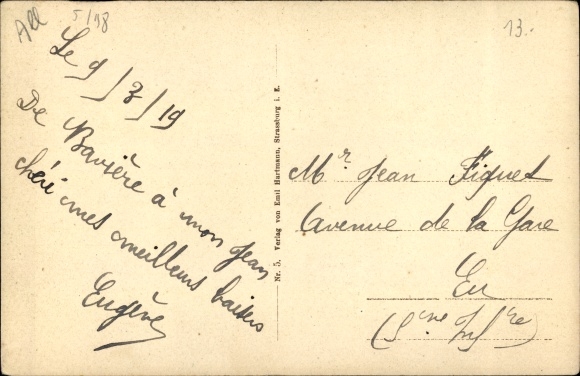 All
5/98
13.-
Le 9/3/19
De Bavière à mon Jean
chéri mes meilleurs baisers
Eugène
Nr. 5. Verlag von Emil Hartmann, Strassburg i. E.
Mr Jean Fiquet
Avenue de la Gare
Eu
(Sne Infre)